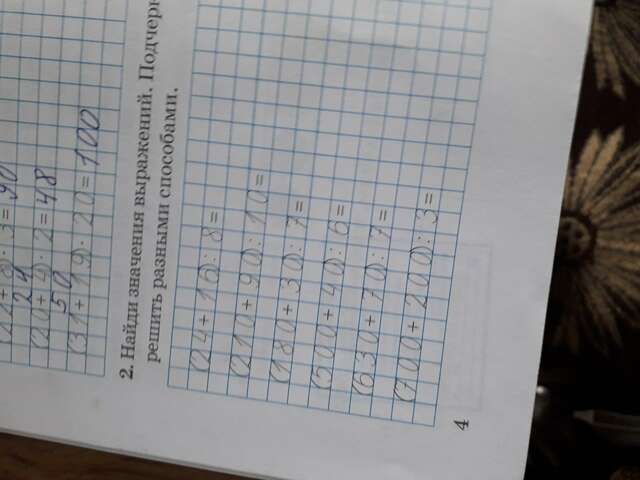 29
(20+9)·2=48
50
(31+19)·20=100
2. Найди значения выражений. Подчерк
решить разными способами.
(24+16):8=
(210+90):10=
(180+30):7=
(500+40):6=
(630+70):7=
(700+200):3=
4